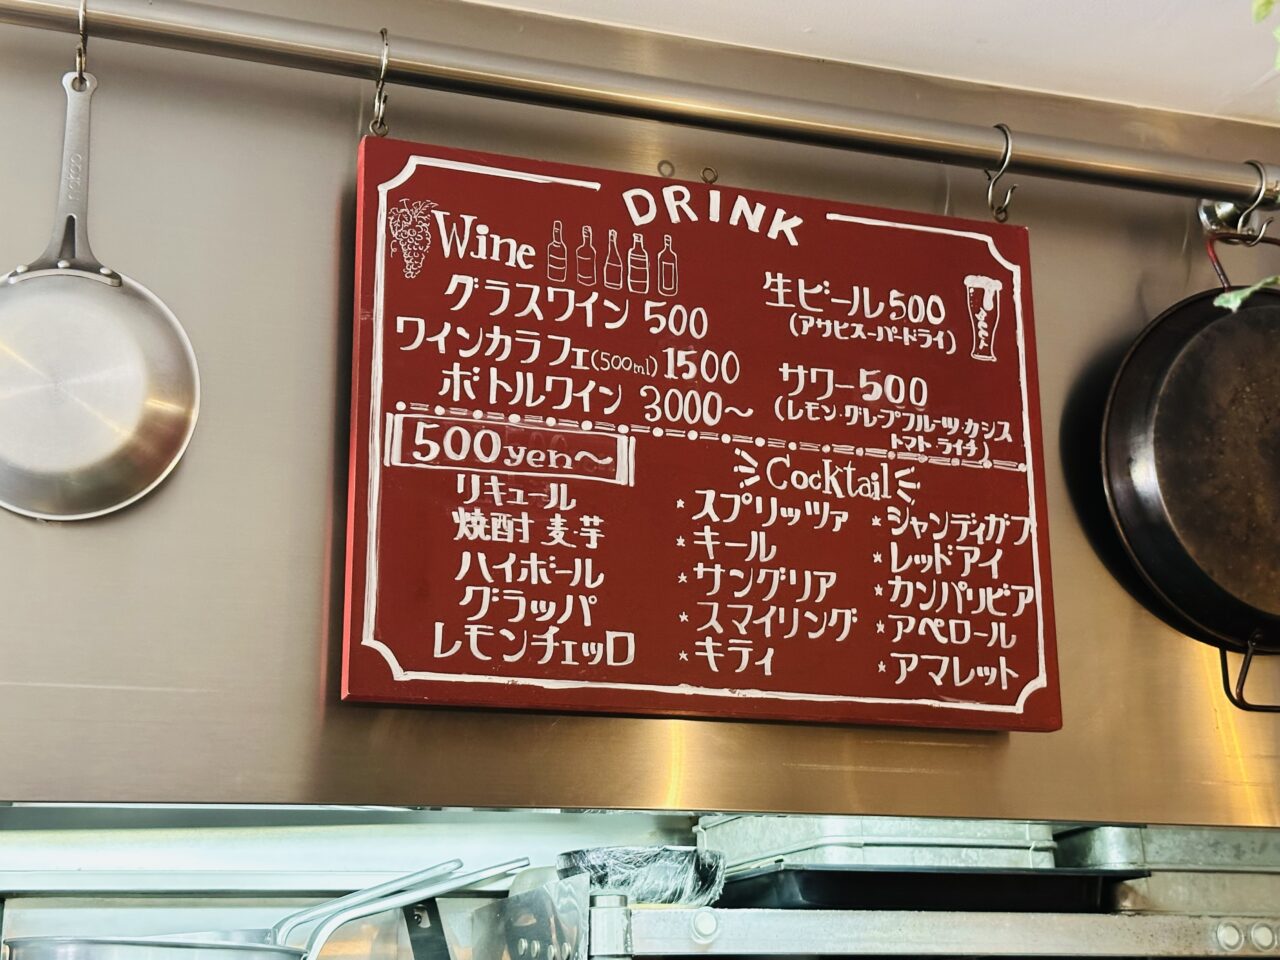 DRINK
Wine
グラスワイン 500
ワインカラフェ(500ml) 1500
ボトルワイン 3000〜
生ビール 500
(アサヒスーパードライ)
beer
サワー 500
(レモン・グレープフルーツ・カシス
トマト・ライチ)
500yen〜
リキュール
焼酎 麦・芋
ハイボール
グラッパ
レモンチェッロ
Cocktail
*スプリッツァ
*キール
*サングリア
*スマイリング
*キティ
*シャンディガフ
*レッドアイ
*カンパリビア
*アペロール
*アマレット